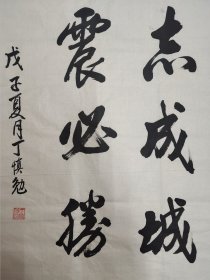 志成城
震必勝
戊子夏月丁慎勉